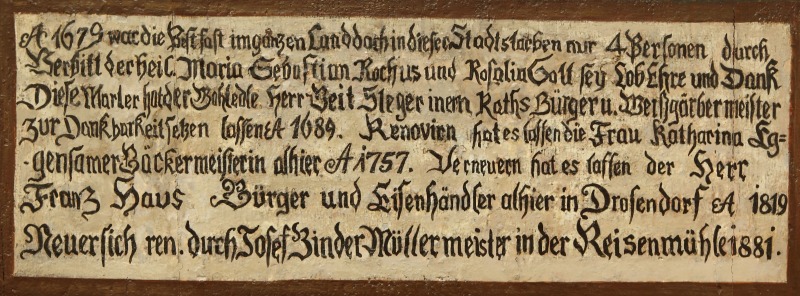 A 1679 war die Pest fast im ganzen Land doch in dieser Stadt starben nur 4 Personen durch
Verbitt der heil. Maria Sebastian Rochus und Rosalia Gott sey Lob Ehre und Dank
Diese Marter hat der Wohledle Herr Veit Steger inern Raths Bürger u. Weißgärbermeister
zur Dankbarkeit setzen lassen A 1689. Renoviern hat es lassen die Frau Katharina Eg=
=gensamer Bäckermeisterin alhier A 1757. Verneuern hat es lassen der Herr
Franz Haus Bürger und Eisenhändler alhier in Drosendorf A 1819
Neuersich ren. durch Josef Binder Müllermeister in der Reisenmühle 1881.